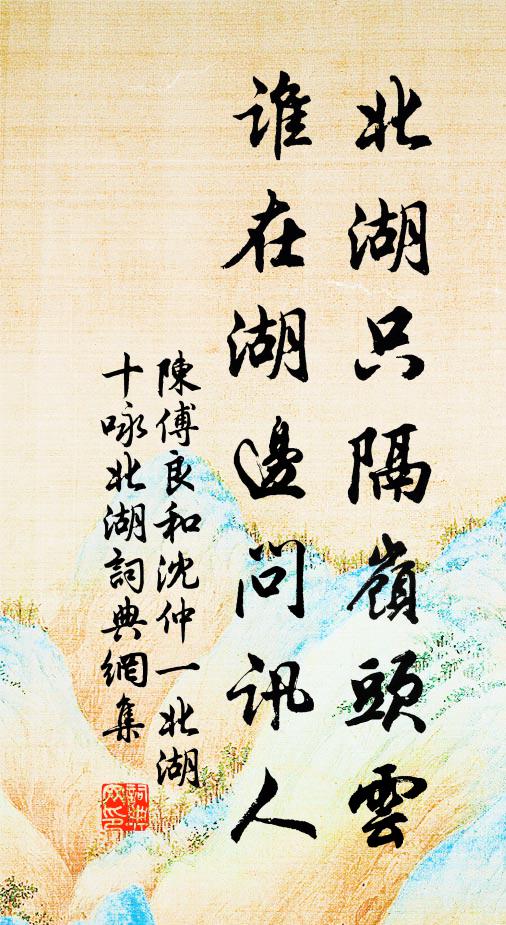 北湖只隔嶺頭雲
誰在湖邊問訊人
陳傅良和沈仲一北湖
十咏北湖詞典網集